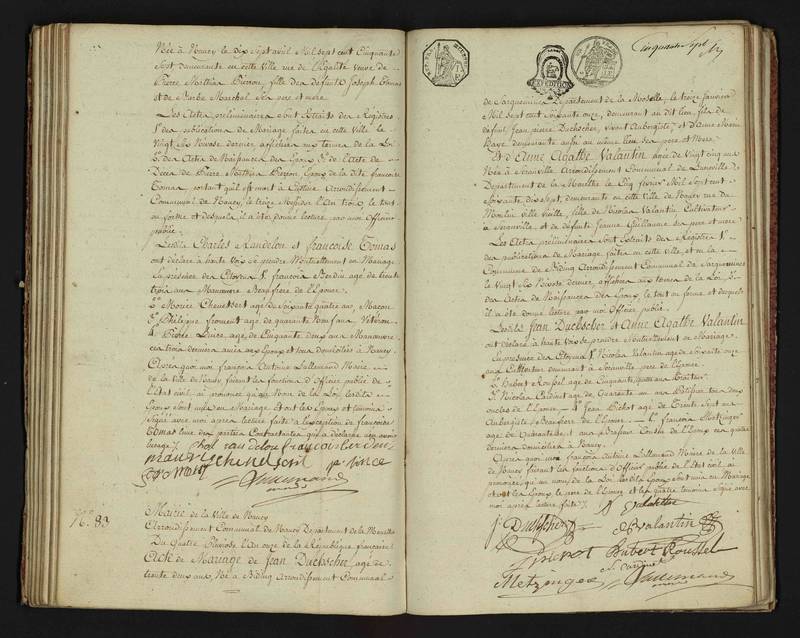 Née à Nancy le dix Sept avril Mil Sept cent Cinquante
Sept demeurante en cette Ville rue de l'Egalité veuve de
Pierre Mathias Bierrou fille des défunts Joseph Tomas
et de Barbe Marchal Ses pere et mere
Les Actes préliminaires sont Extraits des Registres
1° des publications de Mariage faites en cette Ville le
Vingt Six Nivose dernier, affichées aux termes de la Loi
2° des Actes de Naissances des Epoux 3° de l'acte de
Décès de Pierre Mathias Bierrou Epoux de la dite françoise
Tomas portant qu'il est mort à Arrondissement
Communal de Nancy, le treize Messidor l'An trois, le tout
en forme et desquels il a été donné lecture par moi Officier
public.
Lesdits Charles Randelou et françoise Tomas
ont déclaré à haute Voix Se prendre Mutuellement en Mariage
En présence des Citoyens 1° françois Berdin agé de trente
trois ans Manœuvre Beaufrere de l'Epouse.
2° Morice Chenelsert agé de Soixante quatre ans Macon
3° Philippe froment agé de quarante Neuf ans Vétéran
4° Pierre Lince, agé de Cinquante deux ans Manœuvre
ces trois derniers amis aux Epoux et tous domiciliés à Nancy.
Après quoi moi françois Antoine Lallemand Maire
de la Ville de Nancy faisant les fonctions d'Officier public de
l'Etat civil, ai prononcé qu'au Nom de la Loi, lesdits
Epoux sont unis en Mariage et ont les Epoux et témoins
Signé avec moi après lecture faite à l'exception de françoise
Tomas l'une des parties Contractantes qui a déclaré ne savoir
Charl randelou francois berdin
mauris chenelsert
fromant p lince
Lallemand
maire
N° 83
Mairie de la Ville de Nancy
Arrondissement Communal de Nancy Département de la Meurthe
Du Quatre Pluviose l'An onze de la République française
Acte de Mariage de Jean Duchscher, agé de
trente deux ans, Né à Biding Arrondissement Communal
Cinquante Sept
de Sarguemines Département de la Moselle, le treize Janvier
Mil Sept cent Soixante onze, demeurant au dit lieu, fils de
défunt Jean pierre Duchscher, vivant Aubergiste, et d'Anne Marie
Baye demeurante aussi au même lieu Ses pere et Mere.
Et d'Anne Agathe Valantin agée de Vingt cinq ans
Née à Arrondissement Communal de Luneville
Département de la Meurthe le Cinq février Mil Sept cent
Soixante dix Sept, demeurante en cette Ville de Nancy rue du
Moulin Ville Vieille, fille de Nicolas Valantin Cultivateur
à et de défunte Jeanne Guillaume Ses pere et mere
Les Actes préliminaires Sont Extraits des Registres 1°
des publications de Mariage faites en cette ville, et en la
Commune de Biding Arrondissement Communal de Sarguemines
le Vingt Six Nivose dernier, affichées aux termes de la Loi, 2°
des Actes de Naissances des Epoux, le tout en forme et desquels
il a été donné lecture par moi Officier public.
Lesdits Jean Duchscher et Anne Agathe Valantin
ont déclaré à haute voix Se prendre Mutuellement en Mariage
En présence des Citoyens 1° Nicolas Valantin agé de Soixante onze
ans Cultivateur demeurant à pere de l'Epouse.
2° Hubert Roussel agé de Cinquante quatre ans Traiteur
3° Nicolas Calinet agé de Quarante un ans Pâtissier tous deux
oncles de l'Epouse. 4° Jean Pichot agé de Trente Sept ans
Aubergiste Beaufrere de l'Epouse françois Metzinger
agé de Quarante Sept ans Cousin de l'Epoux ces quatre
derniers domiciliés à Nancy.
Après quoi moi françois Antoine Lallemand Maire de la Ville
de Nancy faisant les fonctions d'Officier public de l'Etat civil ai
prononcé, qu'au nom de la Loi, lesdits Epoux sont unis en Mariage
et ont les Epoux, le pere de l'Epouse et les quatre témoins Signé avec
moi après lecture faite.
N Valantin
J. Duchscher A Valantin
J pichot hubert Roussel
Metzinger n calinet
Lallemand
maire